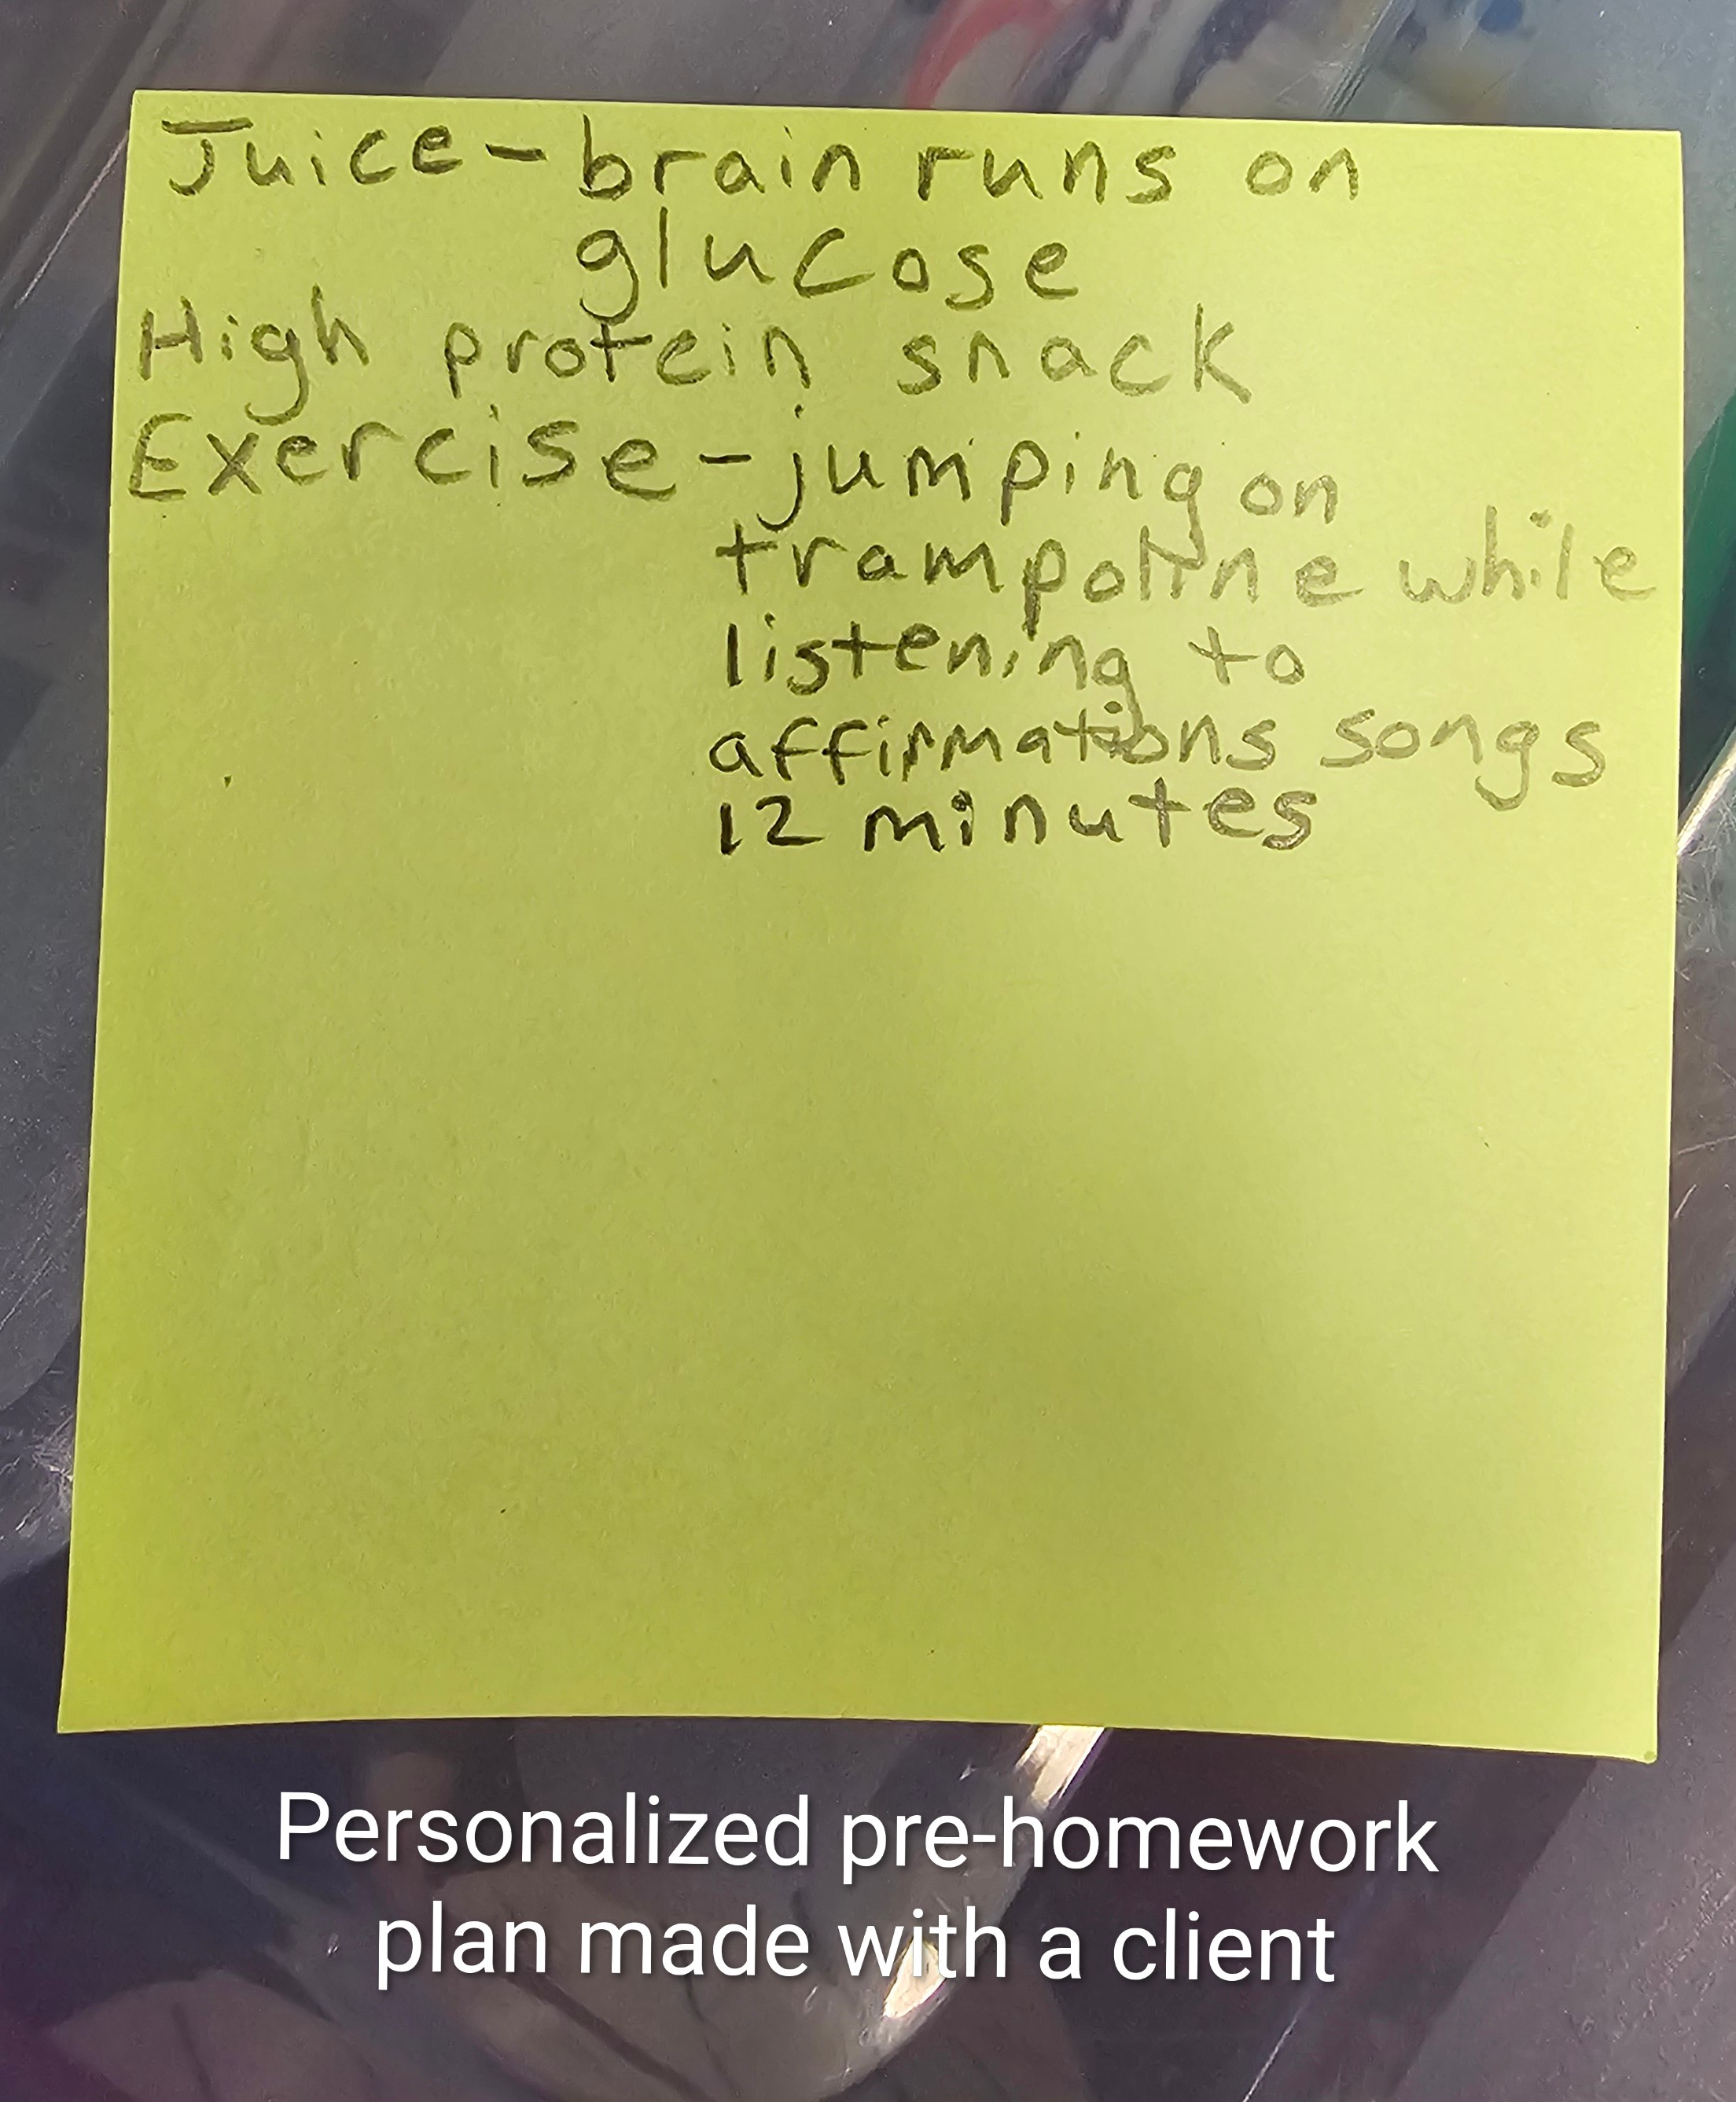 Juice - brain runs on
glucose
High protein snack
Exercise - jumping on
trampoline while
listening to
affirmations songs
12 minutes
Personalized pre-homework
plan made with a client